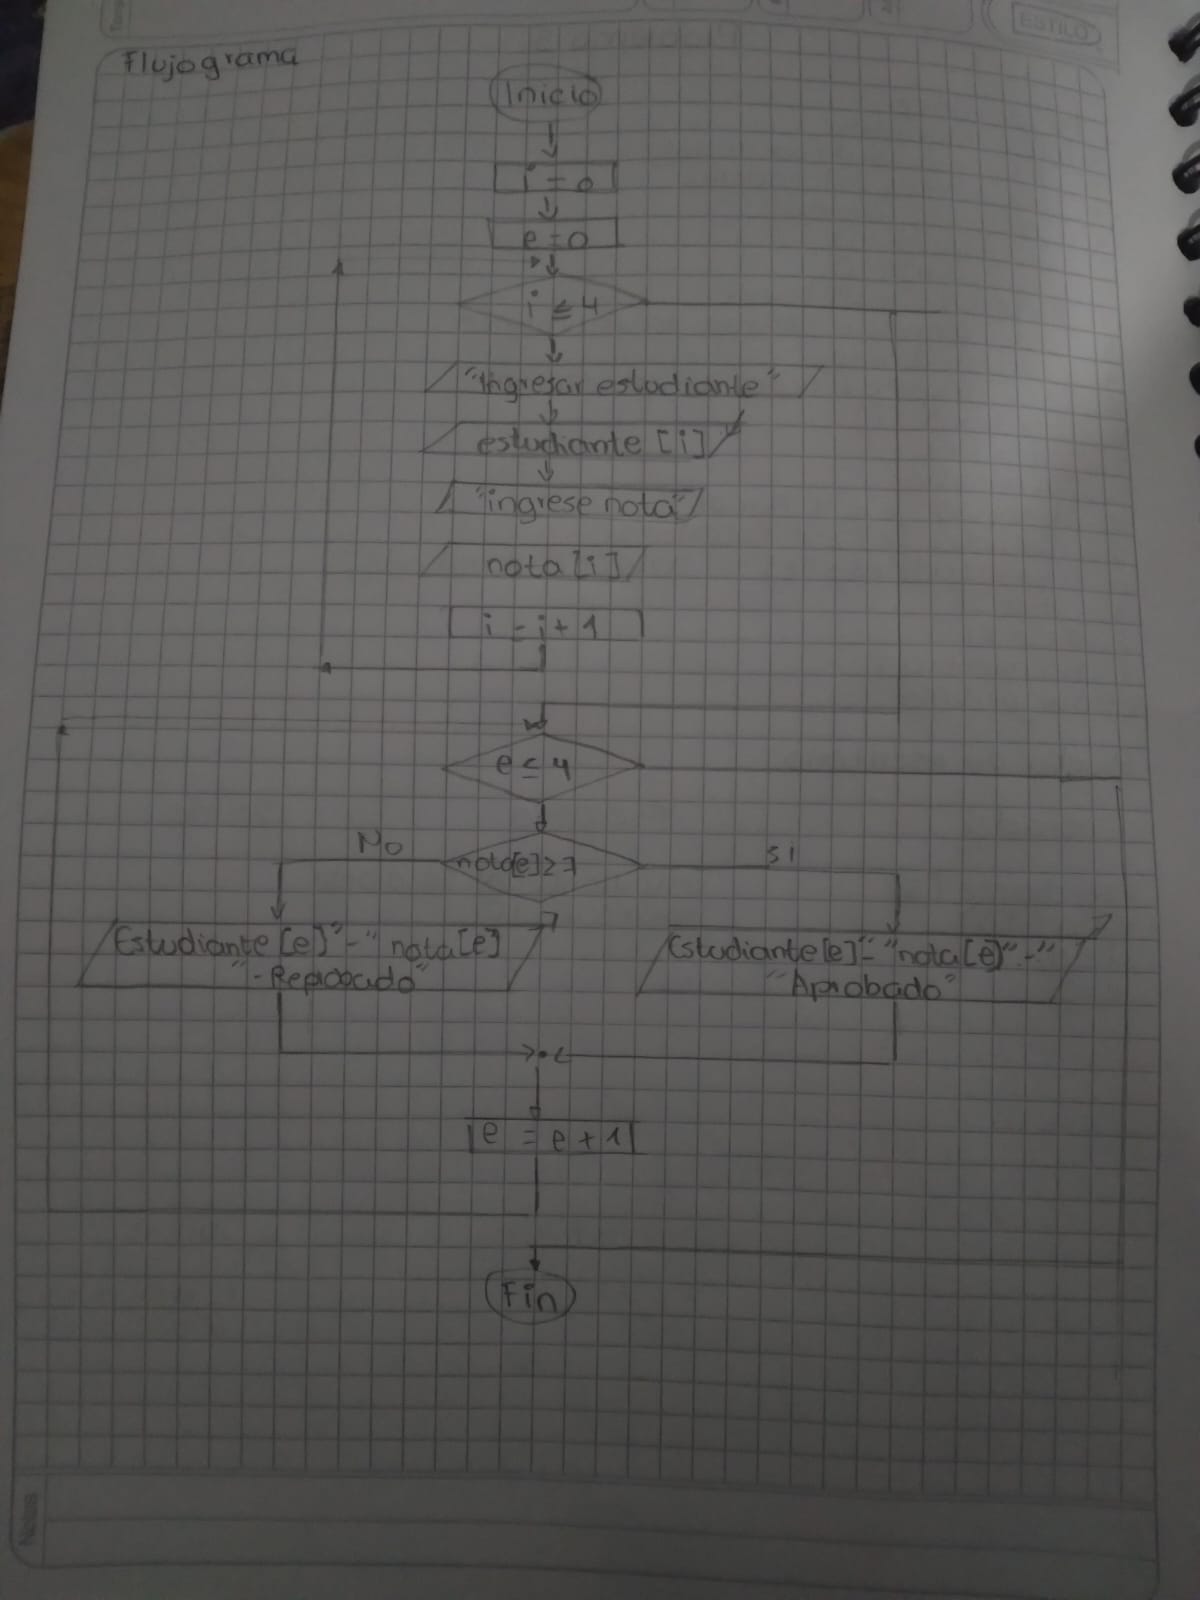 ESTILO
Flujograma
Inicio
i = 0
e = 0
i ≤ 4
"Ingresar estudiante"
estudiante [i]
"ingrese nota"
nota [i]
i = i + 1
e ≤ 4
No
nota[e] ≥ 7
SI
Estudiante [e] "-" nota[e]
"-Reprobado"
Estudiante[e]"-"nota[e]"-"
"Aprobado"
e = e + 1
Fin
Notas